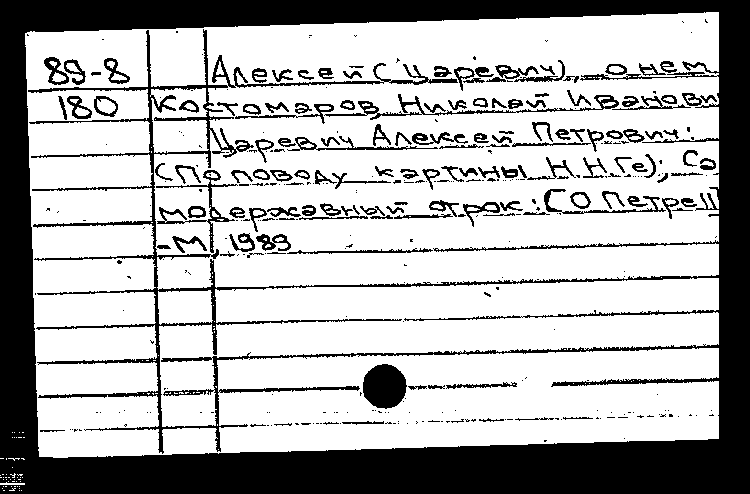 89-8 Алексей (Царевич), о нем
180 Костомаров, Николай Иванови
Царевич Алексей Петрович:
(По поводу картины Н.Н.Ге); Са
модержавный отрок: [О Петре II]
-М, 1989